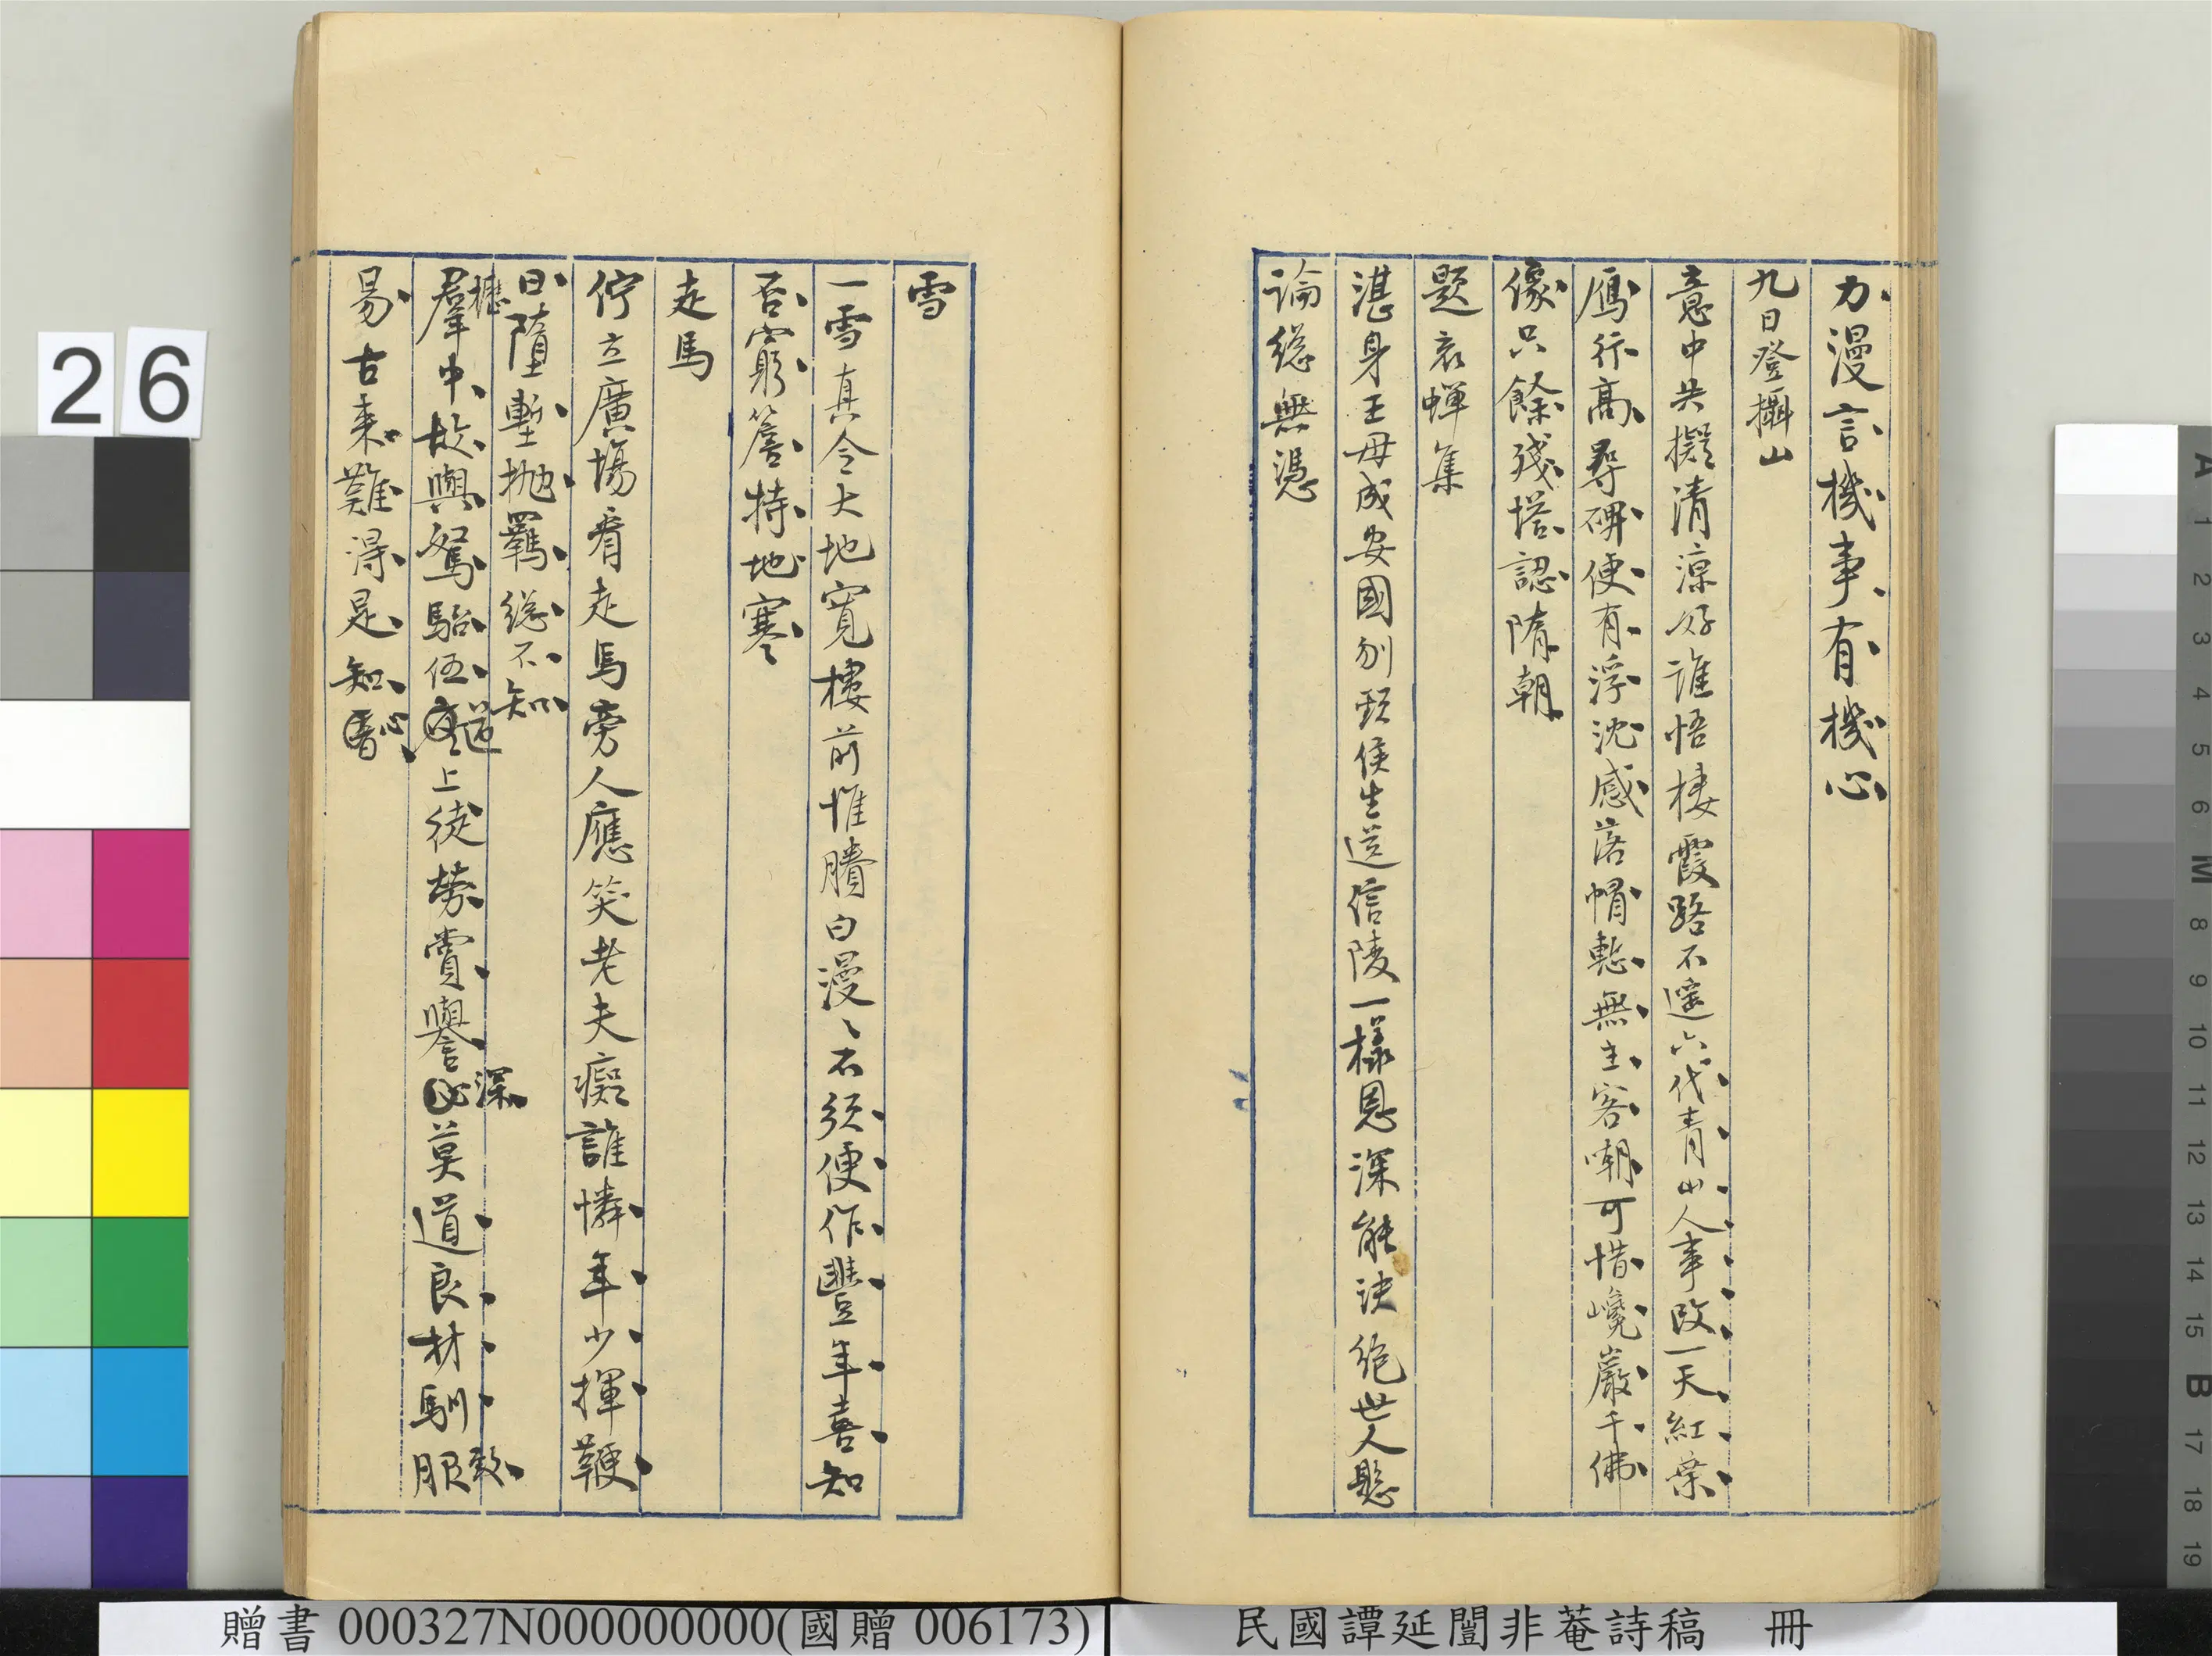 力漫言機事有機心
九日登攝山
意中共擬清涼好誰悟棲霞路不遙六代青山人事改一天紅葉
鴈行高尋碑便有浮沈感落帽慙無主客嘲可惜巉巖千佛
像只餘殘塔認隋朝
題哀蟬集
湛身王母成安國刎頸侯生送信陵一樣恩深能決絕世人懸
論總無憑
雪
一雪真令大地寬樓前惟賸白漫〻不須便作豐年喜知
否窮簷特地寒
走馬
佇立廣場看走馬旁人應笑老夫癡誰憐年少揮鞭
日墮塹拋羈總不知
櫪
羣中故與駑駘伍
道
上徒勞賞譽
深
莫道良材馴服
致
易古來難得是知
心
26
贈書 000327N000000000(國贈 006173)
民國譚延闓非菴詩稿 冊
A 1 2 3 4 5 6 M 8 9 10 11 12 13 14 15 B 17 18 19